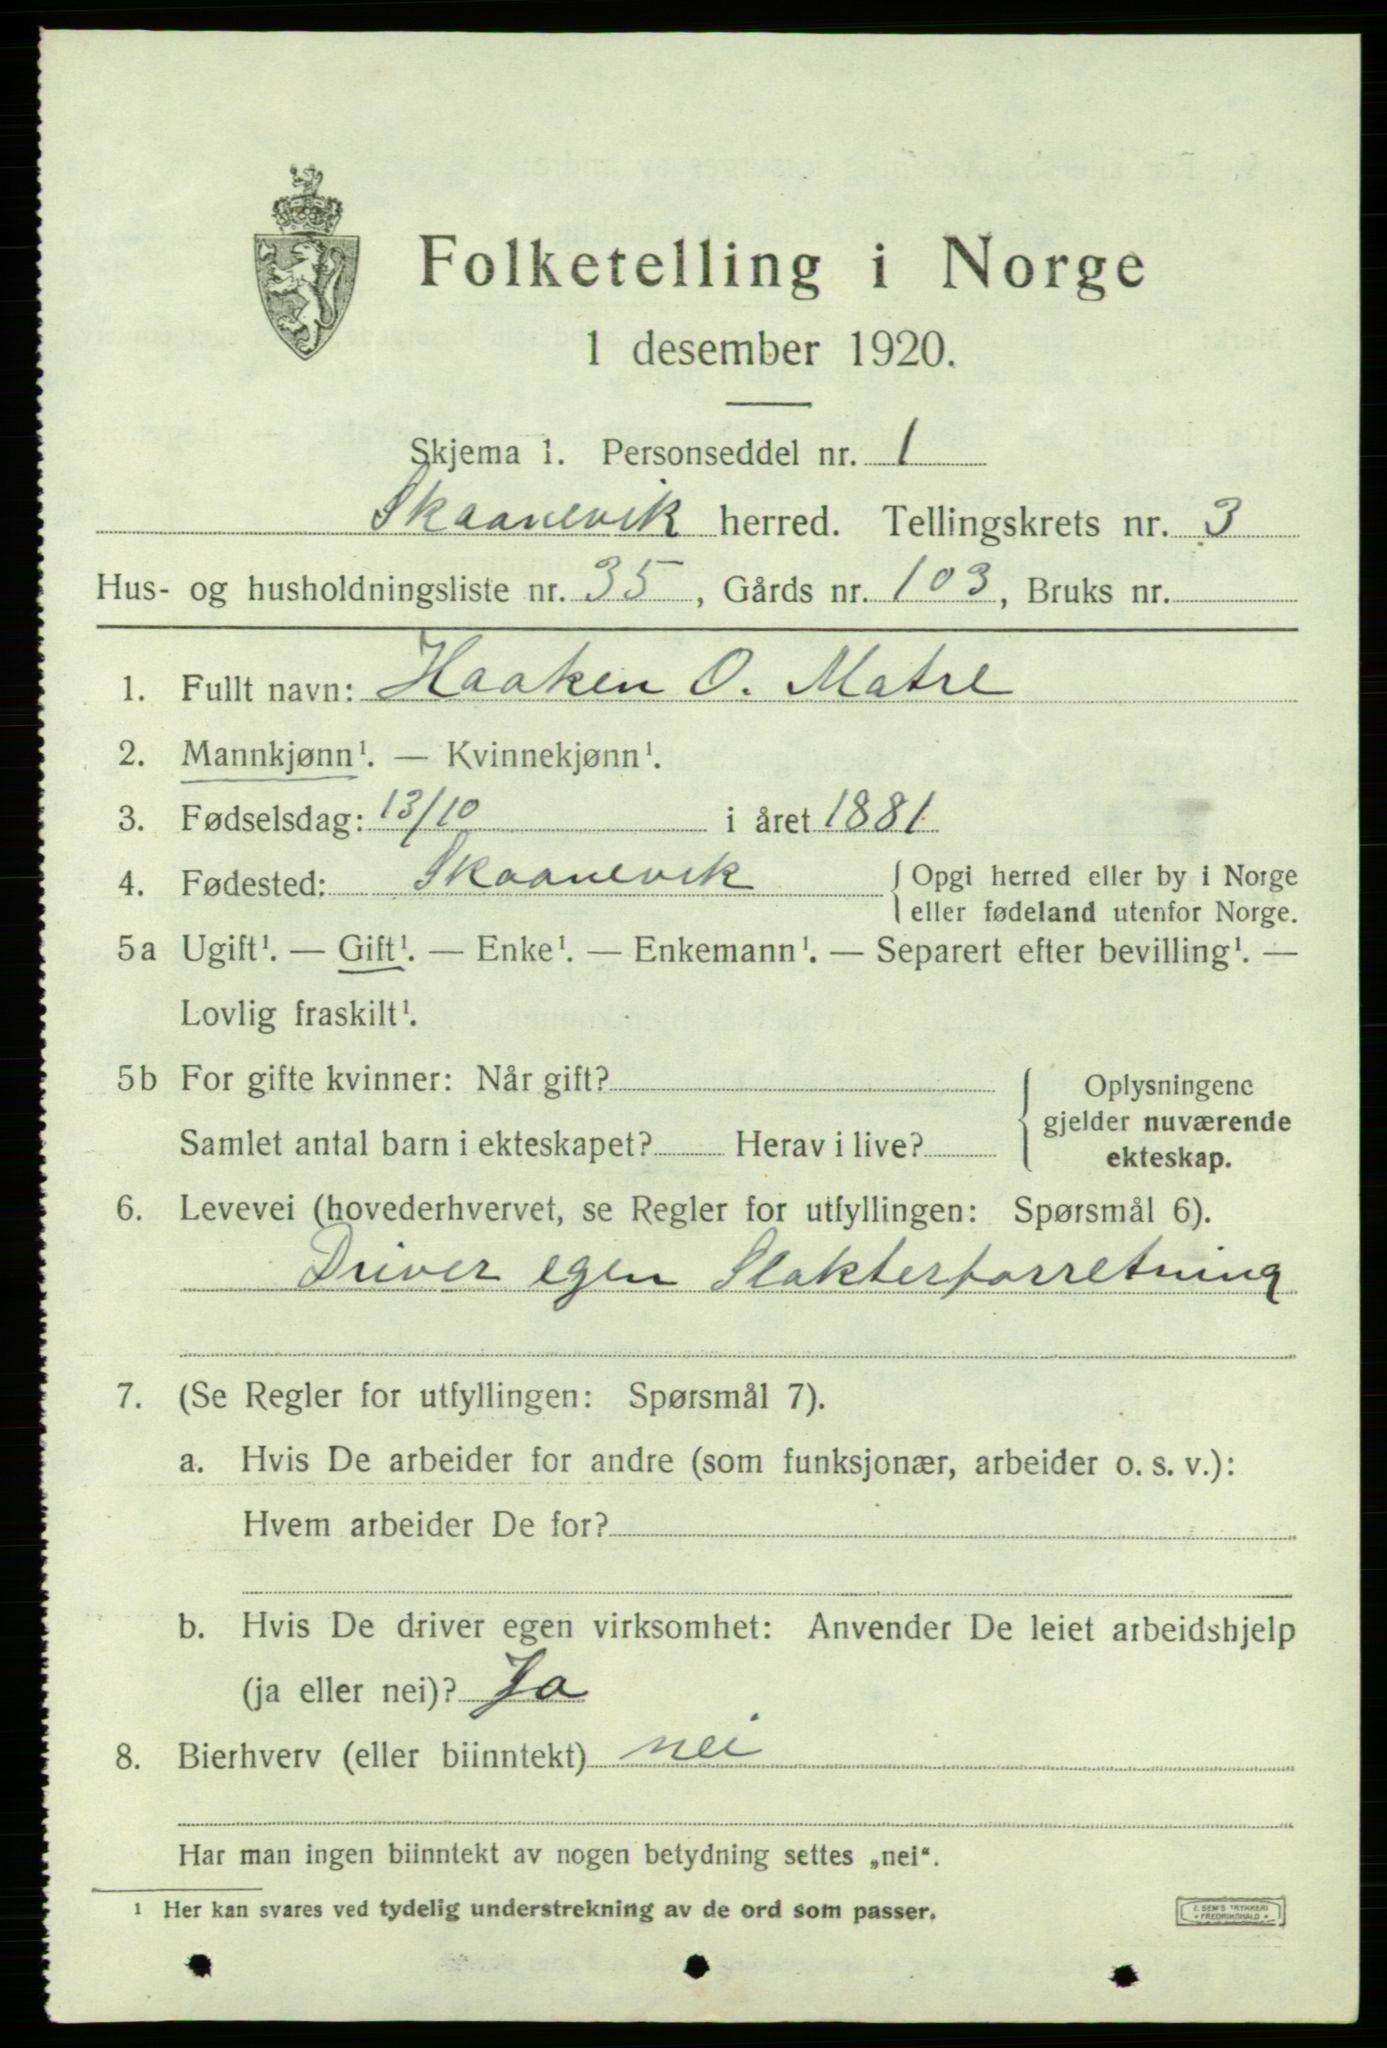 Folketelling i Norge
1 desember 1920.
Skjema 1. Personseddel nr. 1
Skaanevik herred. Tellingskrets nr. 3
Hus- og husholdningsliste nr. 35, Gårds nr. 103, Bruks nr.
1. Fullt navn: Haaken O. Matre
2. Mannkjønn¹. — Kvinnekjønn¹.
3. Fødselsdag: 13/10 i året 1881
4. Fødested: Skaanevik { Opgi herred eller by i Norge
eller fødeland utenfor Norge.
5a Ugift¹. — Gift¹. — Enke¹. — Enkemann¹. — Separert efter bevilling¹. —
Lovlig fraskilt¹.
5b For gifte kvinner: Når gift? { Oplysningene
gjelder nuværende
Samlet antal barn i ekteskapet? Herav i live?
ekteskap.
6. Levevei (hovederhvervet, se Regler for utfyllingen: Spørsmål 6).
Driver egen Slakterforretning
7. (Se Regler for utfyllingen: Spørsmål 7).
a. Hvis De arbeider for andre (som funksjonær, arbeider o. s. v.):
Hvem arbeider De for?
b. Hvis De driver egen virksomhet: Anvender De leiet arbeidshjelp
(ja eller nei)? Ja
8. Bierhverv (eller biinntekt) nei
Har man ingen biinntekt av nogen betydning settes „nei“.
¹ Her kan svares ved tydelig understrekning av de ord som passer.
E. SEM'S TRYKKERI
FREDRIKSHALD